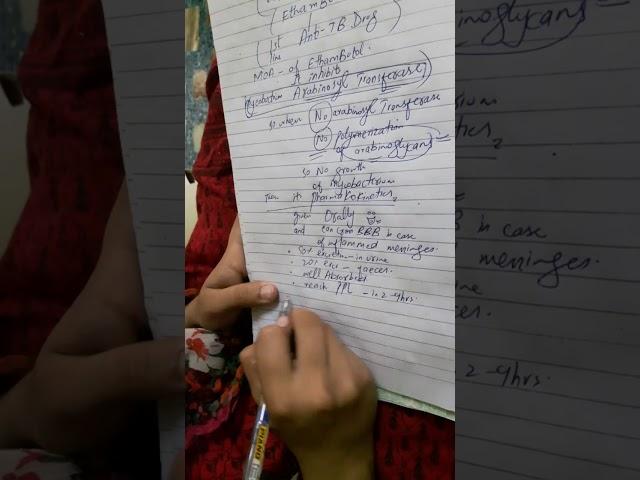 (Ethambu
(1st line Anti-TB Drug
MOA - of Ethambutol.
It inhibit
(Mycobacterium Arabinosyl Transferase)
so when (No) arabinosyl Transferase
(No) polymerization
of (arabinoglycans)
so No growth
of Mycobacterium
Then it pharmokokinetics
given Orally
and can cross BBB in case
of inflammed meninges.
• 50% excretion - in urine
• 20% exc - faeces.
• well Absorbed
• reach - in 2-4hrs.
PIANO
inoglycans)
rium
tics
is case
meninges.
ine
ces.
2-4hrs.